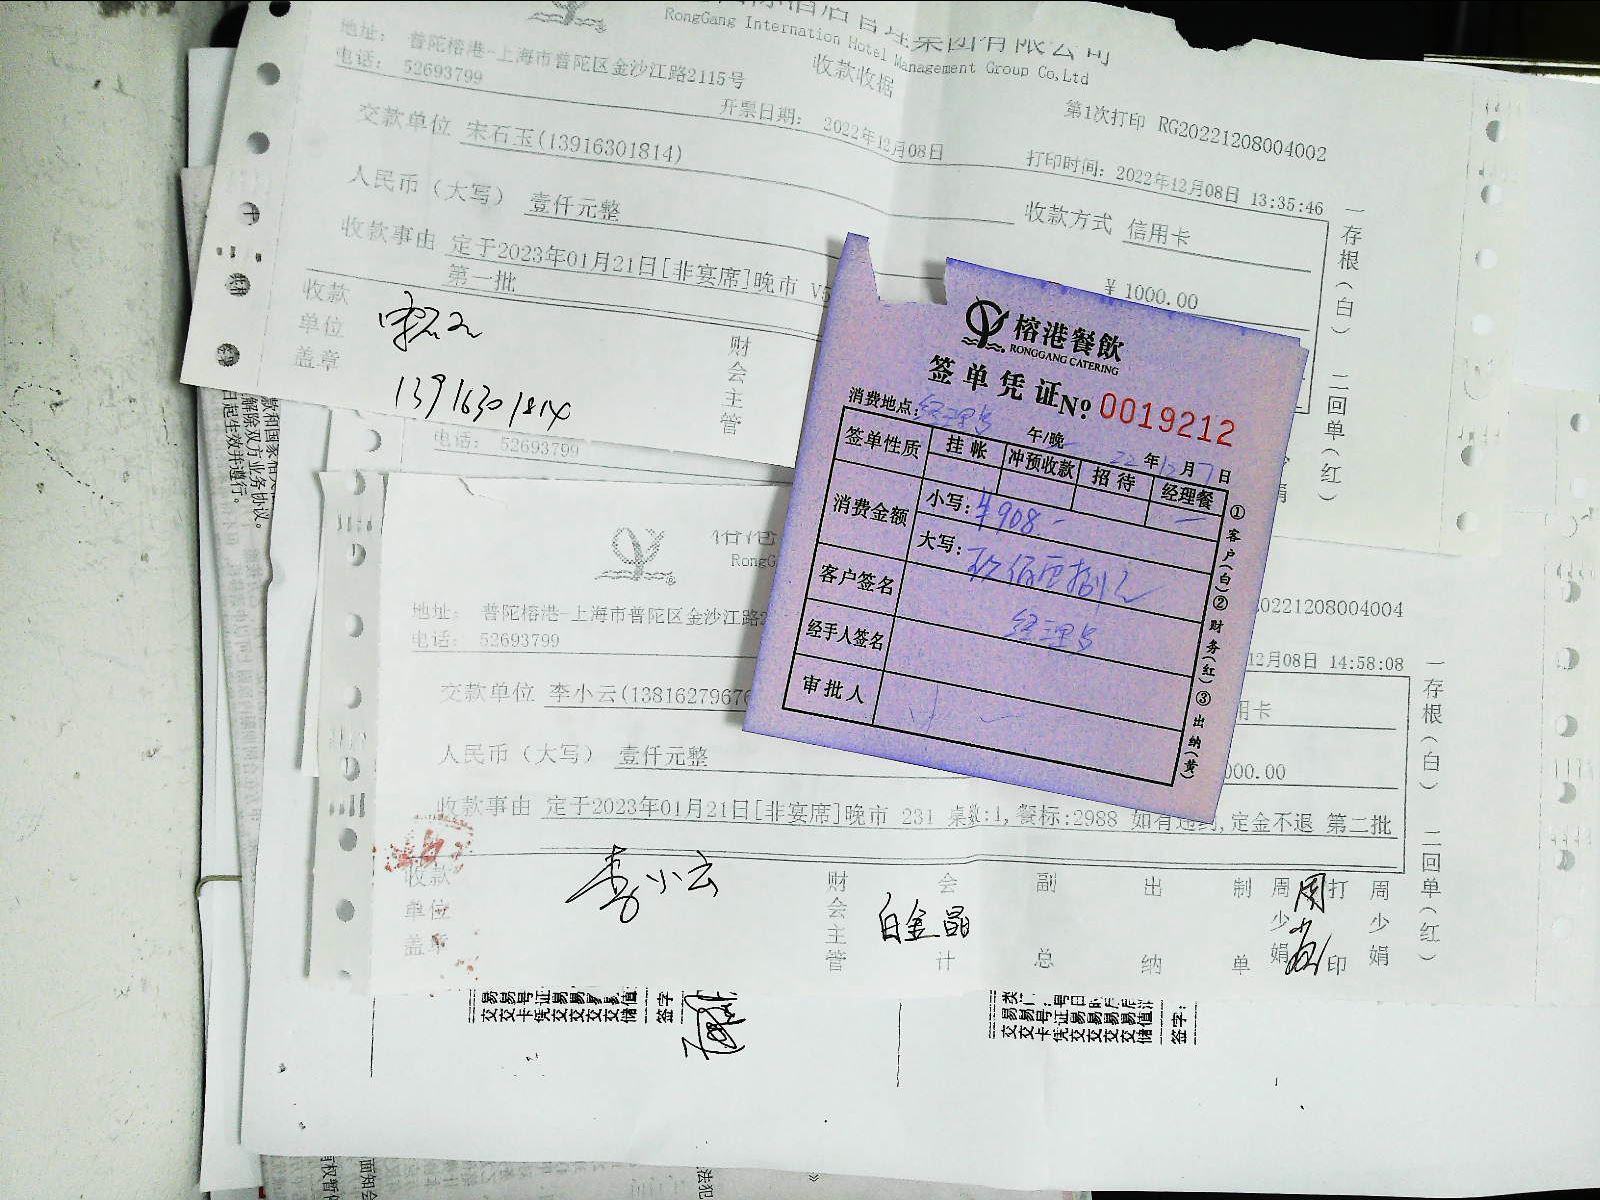 集团有限公司
RongGang Internation Hotel Management Group Co,Ltd
地址： 普陀榕港-上海市普陀区金沙江路2115号
收款收据
电话： 52693799
开票日期： 2022年12月08日
第1次打印 RG20221208004002
交款单位 宋石玉(13916301814)
打印时间：2022年12月08日 13:35:46
人民币（大写） 壹仟元整
收款方式 信用卡
收款事由 定于2023年01月21日[非宴席]晚市 V5
第一批
¥ 1000.00
收款单位盖章
宋石玉
13916301814
财会主管
一存根(白) 二回单(红)
电话： 52693799
榕港餐飲
RONGGANG CATERING
签单凭证 №0019212
消费地点：经理房
午/晚
22年12月7日
签单性质 挂帐 冲预收款 招待 经理餐
消费金额 小写：¥908-
大写：玖佰零捌元
客户签名
经手人签名 经理房
审批人
①客户(白)②财务(红)③出纳(黄)
榕港
RongG
地址： 普陀榕港-上海市普陀区金沙江路2
20221208004004
电话： 52693799
12月08日 14:58:08
交款单位 李小云(1381627967
用卡
人民币（大写） 壹仟元整
000.00
收款事由 定于2023年01月21日[非宴席]晚市 231 桌数:1,餐标:2988 如有违约,定金不退 第二批
收款单位盖章
李小云
财会主管
会计
白金晶
副总
出纳
制单
周少娟
周少娟
打印
周少娟
一存根(白) 二回单(红)
签字
签字：
款和国家相关
解除双方业务协议。
日起生效并遵行。